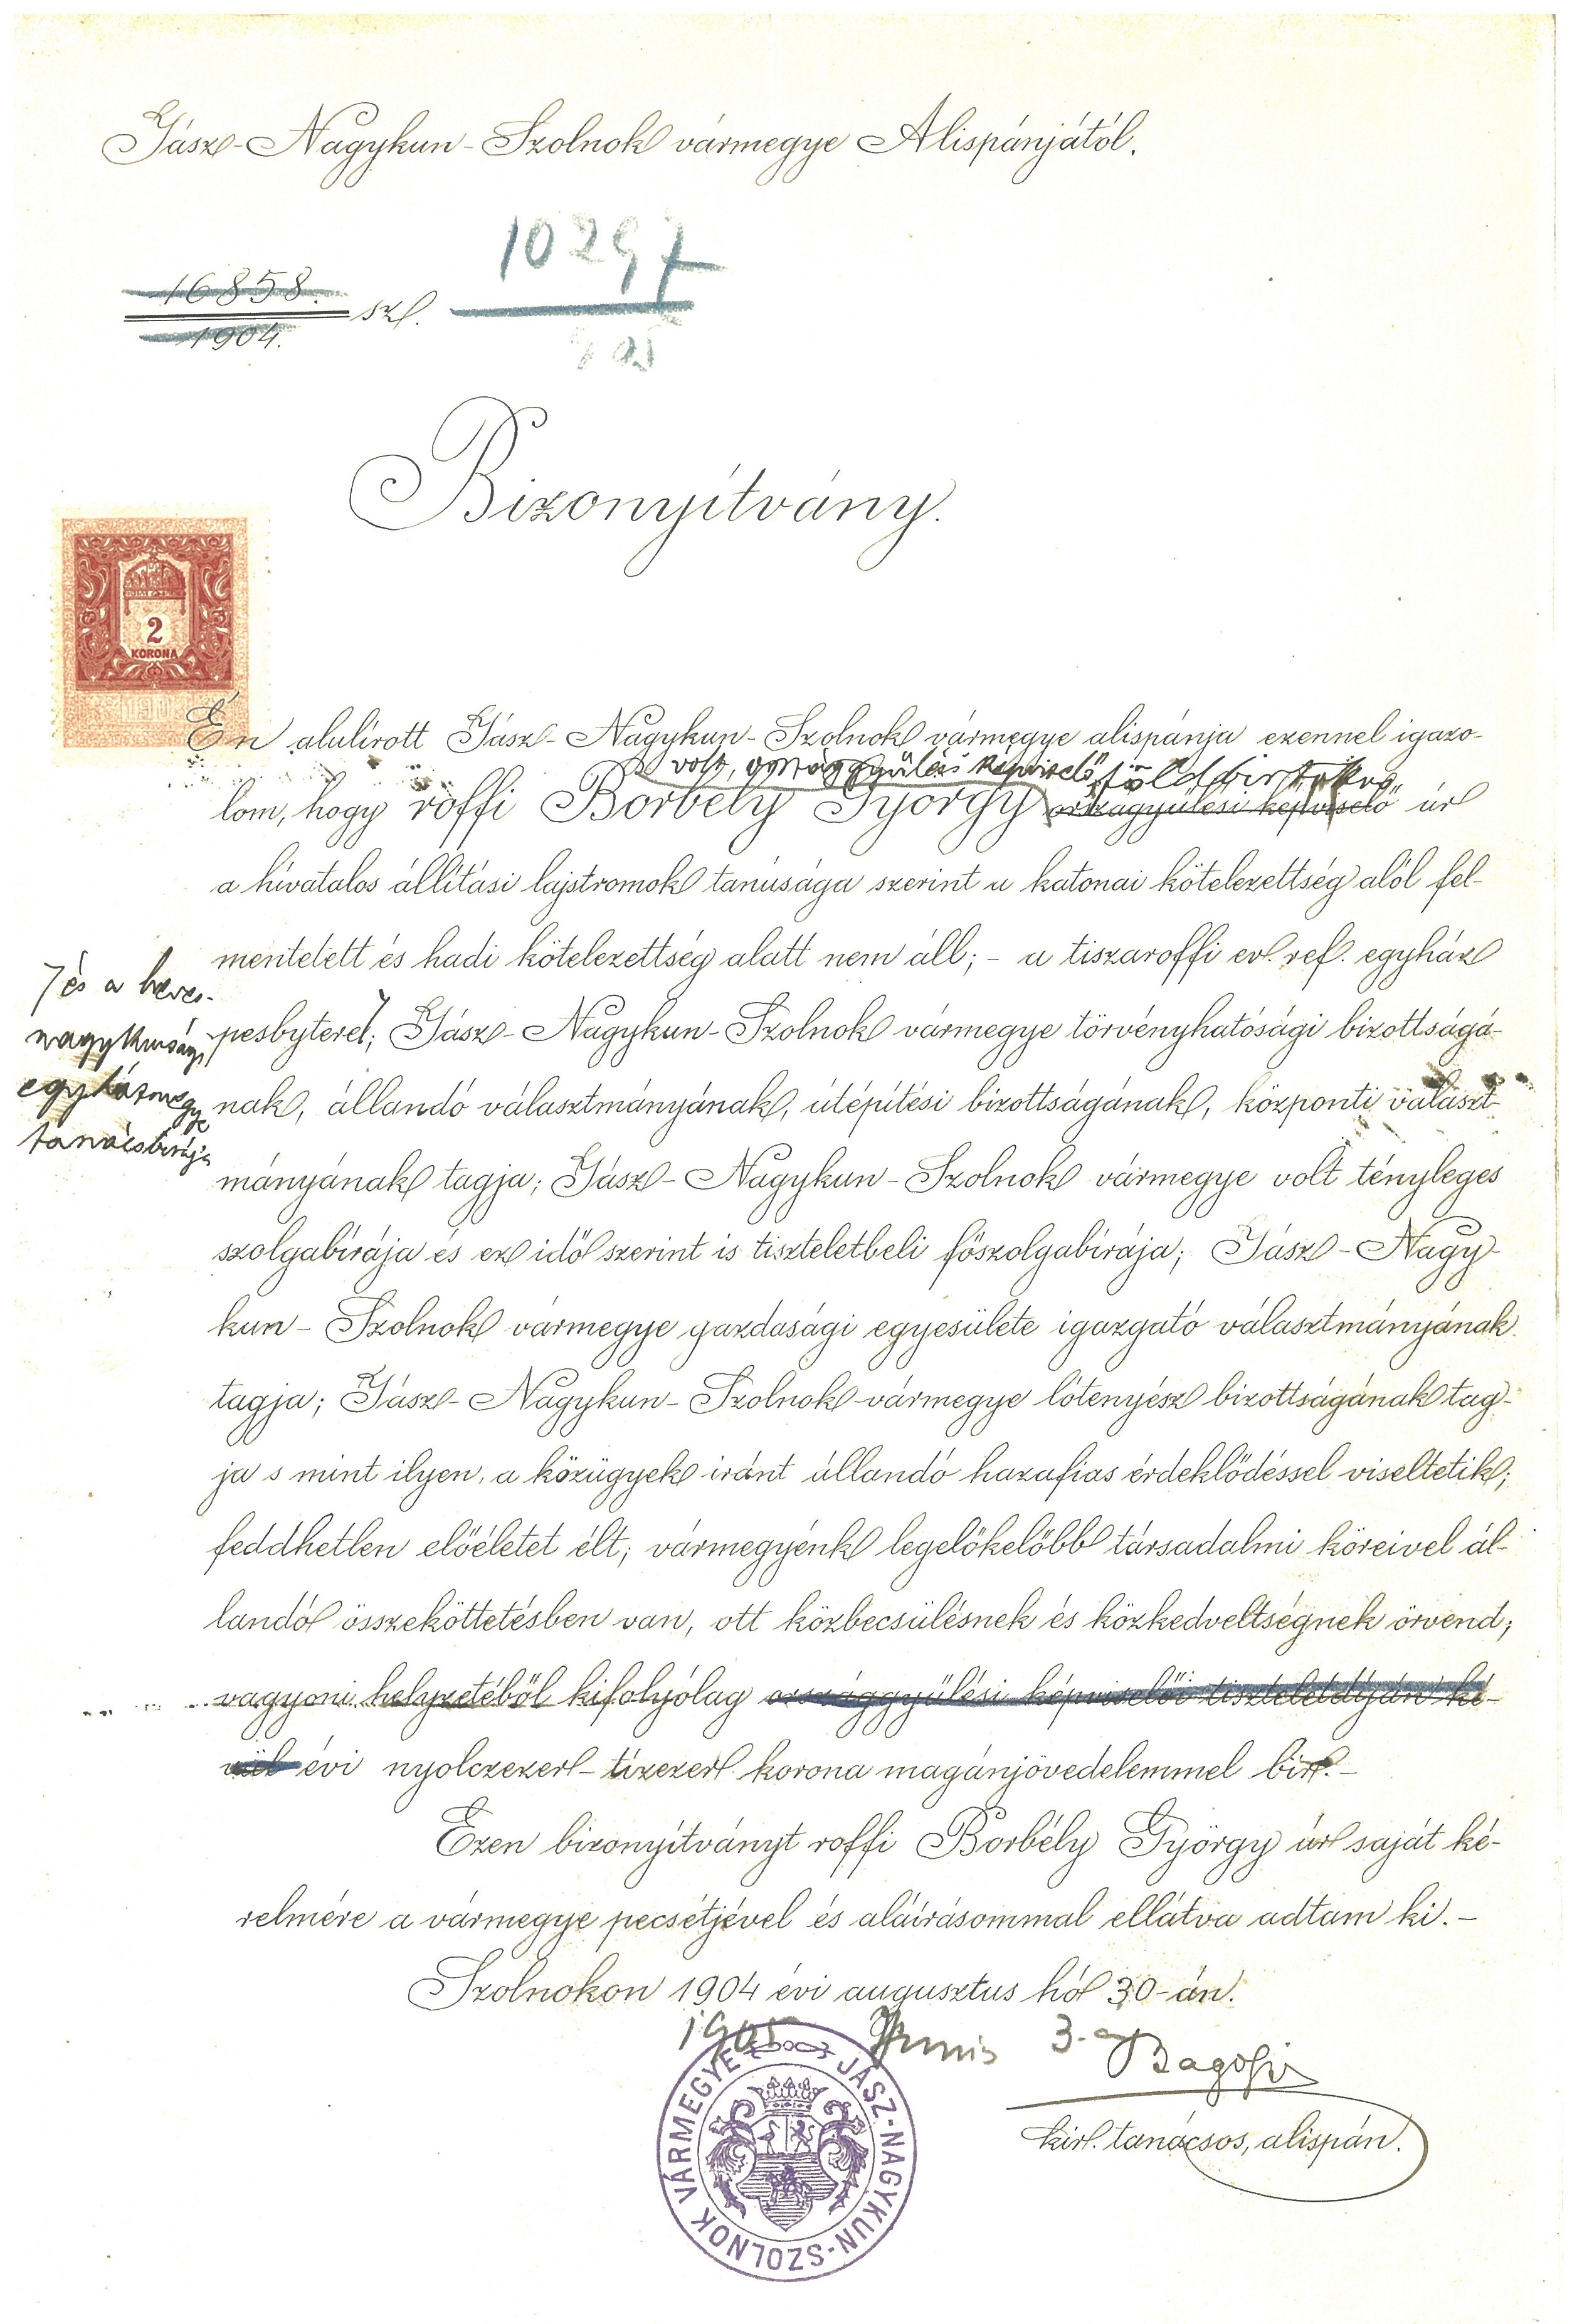 Jász-Nagykun-Szolnok vármegye Alispánjától.
10297
16858. sz.
1904.
905
Bizonyítvány.
2
KORONA
Én alulírott Jász-Nagykun-Szolnok vármegye alispánja ezennel igazo-
volt, országgyűlési képviselő, földbirtokos
lom, hogy roffi Borbély György országgyűlési képviselő úr
a hivatalos állítási lajstromok tanúsága szerint a katonai kötelezettség alól fel-
mentetett és hadi kötelezettség alatt nem áll; - a tiszaroffi ev. ref. egyház
pesbytere; Jász-Nagykun-Szolnok vármegye törvényhatósági bizottságá-
nak, állandó választmányának, útépítési bizottságának, központi választ-
mányának tagja; Jász-Nagykun-Szolnok vármegye volt tényleges
szolgabírája és ez idő szerint is tiszteletbeli főszolgabírája; Jász-Nagy-
kun-Szolnok vármegye gazdasági egyesülete igazgató választmányának
tagja; Jász-Nagykun-Szolnok vármegye lótenyész bizottságának tag-
ja s mint ilyen, a közügyek iránt állandó hazafias érdeklődéssel viseltetik;
feddhetlen előéletet élt; vármegyénk legelőkelőbb társadalmi köreivel ál-
landó összeköttetésben van, ott közbecsülésnek és közkedveltségnek örvend;
vagyoni helyzetéből kifolyólag országgyűlési képviselői tiszteletdíján kí-
vül évi nyolczezer-tízezer korona magánjövedelemmel bir.-
Ezen bizonyítványt roffi Borbély György úr saját ké-
relmére a vármegye pecsétjével és aláírásommal ellátva adtam ki.-
Szolnokon 1904 évi augusztus hó 30-án.
1905 Junis 3-
Bagossy
kir. tanácsos, alispán.
7 és a heves-
nagykunsági
egyházmegye
tanácsbirája
JÁSZ-NAGYKUN-SZOLNOK VÁRMEGYE